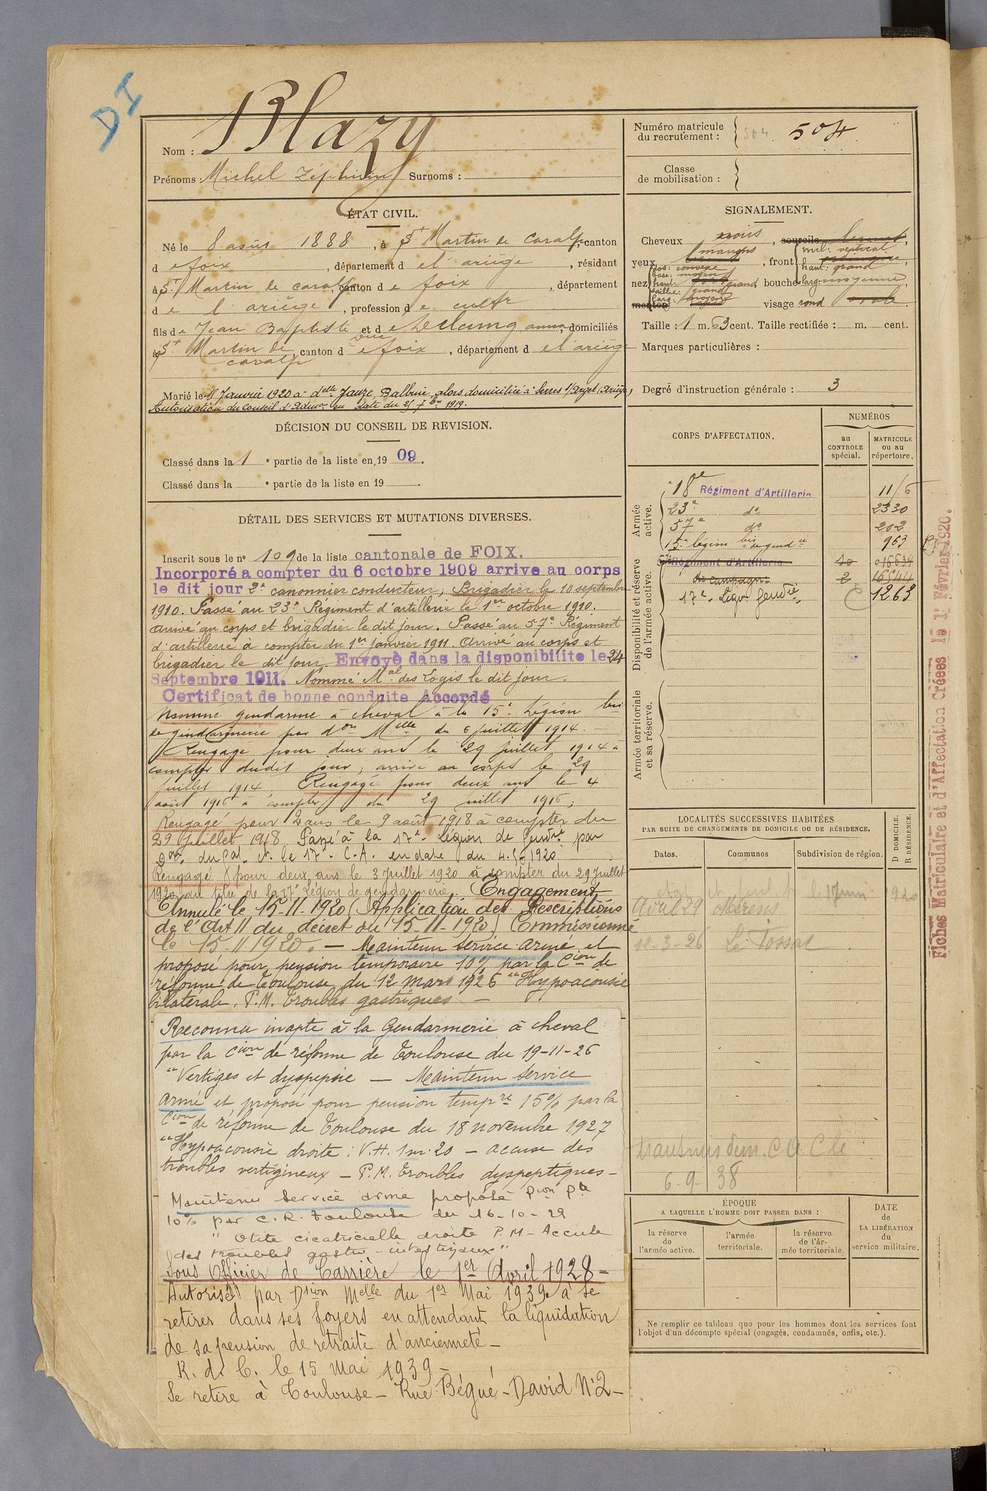 DI
Nom : Blazy
Prénoms : Michel Zéphirin Surnoms :
ÉTAT CIVIL.
Né le 8 août 1888, à St Martin de Caralp, canton
d e foix, département d e l'ariège, résidant
à St Martin de caralp, canton d e foix, département
d e l'ariège, profession d e cultr
fils d e Jean Baptiste et d e domiciliés
à St Martin de caralp, canton d e foix, département d e l'ariège
Marié le Janvier 1920 à delle Jauze, Balbine, alors domiciliée à Serres s/Arget (Ariège)
Autorisation du Conseil d'Admon en date du 7bre 1919.
DÉCISION DU CONSEIL DE REVISION.
Classé dans la 1 e partie de la liste en 1909.
Classé dans la e partie de la liste en 19 .
DÉTAIL DES SERVICES ET MUTATIONS DIVERSES.
Inscrit sous le n° 109 de la liste cantonale de FOIX.
Incorporé à compter du 6 octobre 1909 arrive au corps
le dit jour 2e canonnier conducteur, Brigadier le 10 septembre
1910. Passé au 23e Régiment d'artillerie le 1er octobre 1910.
Arrivé au corps et brigadier le dit jour. Passé au 57e Régiment
d'artillerie à compter du 1er janvier 1911. Arrivé au corps et
brigadier le dit jour. Envoyé dans la disponibilité le 24
Septembre 1911. Nommé Mal des Logis le dit jour.
Certificat de bonne conduite Accordé
Nommé gendarme à cheval à la 15e Légion bis
de gendarmerie par don Melle du 6 juillet 1914.
Rengagé pour deux ans le 29 juillet 1914 à
compter dudit jour, arrivé au corps le 29
juillet 1914 Rengagé pour deux ans le 4
août 1916 à compter du 29 juillet 1916,
Rengagé pour 2 ans le 9 août 1918 à compter du
29 juillet 1918 Passé à la 17e Légion de Gendrie par
le 17e C.A. en date du 4.5.1920
Rengagé pour deux ans le 3 juillet 1920 à compter du 29 juillet
1920 au titre de la 17e Légion de gendarmerie. Engagement
Annulé le 15-11-1920 (Application des Prescriptions
de l'Art 11 du décret du 15-11-1920) Commissionné
le 15-11-1920. — Maintenu service armé et
proposé pour pension temporaire 10% par la Cion de
réforme de Toulouse du 12 mars 1926 "Hypoacousie
bilatérale. P.M. troubles gastriques —
Reconnu inapte à la Gendarmerie à cheval
par la Cion de réforme de Toulouse du 19-11-26
"Vertiges et dyspepsie — Maintenu service
armé et proposé pour pension tempre 15% par la
Cion de réforme de Toulouse du 18 novembre 1927
"Hypoacousie droite : V.H. 1m.20 – accuse des
troubles vertigineux – P.M. troubles dyspeptiques –
Maintenu service armé proposé Pon Pte
10% par C.R. Toulouse du 16-10-29
"Otite cicatricielle droite P.M - Accuse
des troubles gastro-intestinaux"
Sous Officier de Carrière le 1er Avril 1928 –
Autorisé par Dsion Melle du 1er Mai 1939 à se
retirer dans ses foyers en attendant la liquidation
de sa pension de retraite d'ancienneté –
R. d. C. le 15 Mai 1939 –
Se retire à Toulouse – Rue Bégué-David N°2 –
Numéro matricule
du recrutement : 504. 504
Classe
de mobilisation :
SIGNALEMENT.
Cheveux noirs, sourcils
yeux marrons, front incl: vertical
haut: grand
nez dos: convexe
base: moyen
haut: grand bouche larg: moyenne
saillie: grand
larg: moyen
menton visage rond ovale
Taille : 1 m. 63 cent. Taille rectifiée : m. cent.
Marques particulières :
Degré d'instruction générale : 3
CORPS D'AFFECTATION.
NUMÉROS
au
CONTROLE
spécial.
MATRICULE
ou au
répertoire.
Armée
active.
18e Régiment d'Artillerie 11/6
23e do 2330
57e do 202
15e légion bis de gendie 963
Disponibilité et réserve
de l'armée active.
Régiment d'Artillerie
de campagne
17e Légon Gendrie C 1263
Armée territoriale
et sa réserve.
LOCALITÉS SUCCESSIVES HABITÉES
PAR SUITE DE CHANGEMENTS DE DOMICILE OU DE RÉSIDENCE.
Dates. Communes Subdivision de région. D DOMICILE. R RÉSIDENCE.
1920
Avril 29 Mérens
12-3-26 Le Fossat
transmis dem. C a Cle
6-9 38
ÉPOQUE
A LAQUELLE L'HOMME DOIT PASSER DANS :
la réserve
de
l'armée active.
l'armée
territoriale.
la réserve
de l'ar-
mée territoriale.
DATE
de
LA LIBÉRATION
du
service militaire.
Ne remplir ce tableau que pour les hommes dont les services font
l'objet d'un décompte spécial (engagés, condamnés, omis, etc.).
Fiches Matriculaire et d'Affectation Créées le 1er Février 1920.